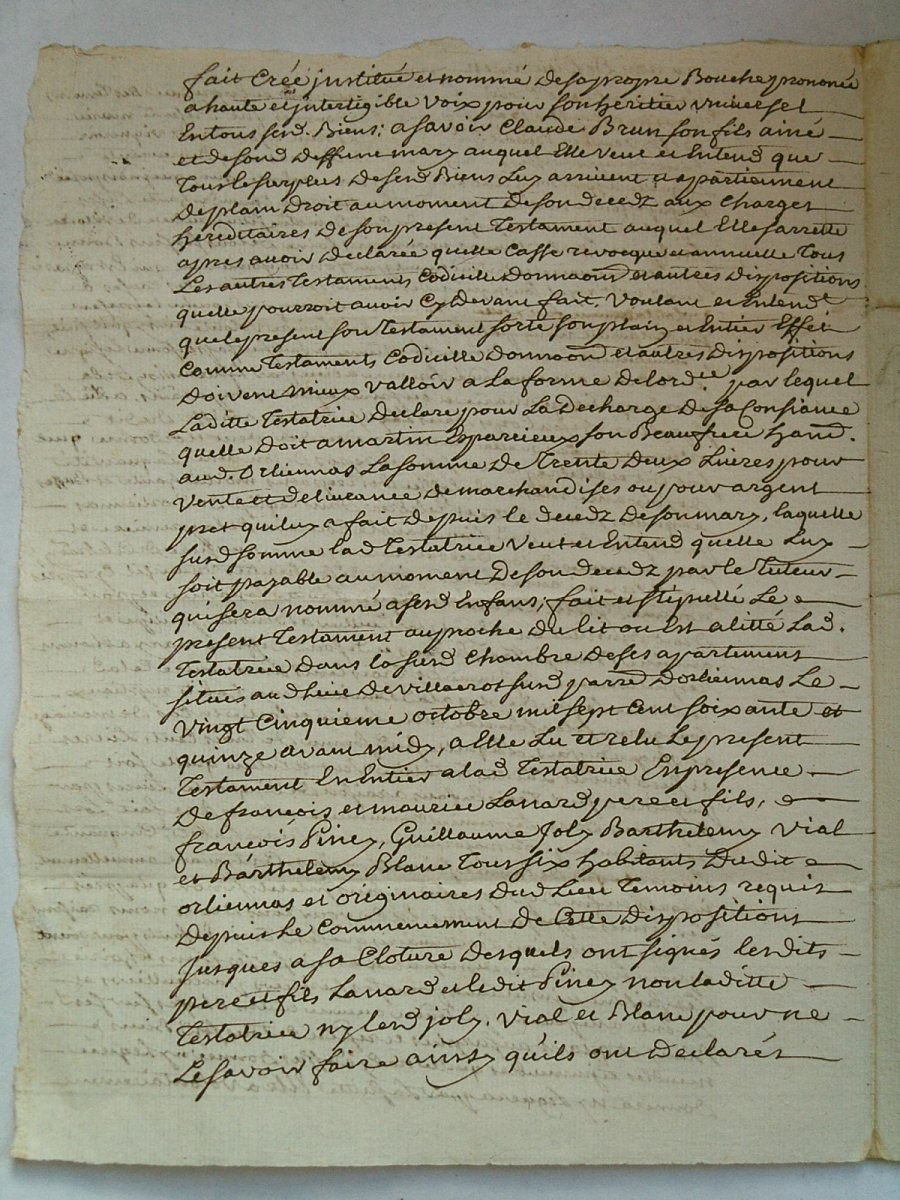 fait créé justitué et nommé de sa propre Bouche prononcé
a haute et intertigible voix pour son heritier universel
En tous serd. Biens; a savoir Claude Brun son fils ainé
et desond deffunt mary auquel Elle veut et Entend que
tous le surplus deserd Biens luy arrivent et apartiennent
de plain droit au moment de son decedz aux Charges
hereditaires de son present testament auquel Elle sarrette
apres avoir declarée quelle Casse revocque et annulle tous
Les autres testaments Codicile donnaon et autres dispositions
quelle pourroit avoir Cy devant fait. voulant et Entendt
que le present son testament sorte son plain et Entier Effet
Comme testament, Codicille donnaon et autres dispositions
doivent mieux valloir a la forme de lordce. par lequel
Laditte testatrice declare pour la decharge de sa Consiance
quelle doit a martin Esparcieux son Beaufrere hand.
aud. Orliennas la somme de trente deux Livres pour
vente et delivrance de marchandises ou pour argent
pret qui luy a fait depuis le decedz de son mary, laquelle
susd somme lad testatrice veut et Entend quelle luy
soit payable au moment de son decedz par le tuteur
qui sera nommé a serd Enfans; fait et stipullé Le
present testament au proche du lit ou Est alitté lad.
testatrice dans la susd Chambre de ses apartement
situés aud lieu de villacrot susd parre dorliennas Le
vingt Cinquieme octobre mil sept Cent soixante et
quinze avant midy, a Elle lu et relu le present
testament En Entier a lad testatrice En presence
de françois et maurice Lanard pere et fils,
françois Piney, Guillaume Joly Barthelemy vial
et Barthelemy Blanc tous six habitants dudit
orliennas et originaires dud lieu temoins requis
depuis le Commencement de Cette dispositions
jusques a sa Cloture desquels ont signés lesdits
pere et fils Lanard et ledit Piney non laditte
testatrice ny lesd joly. vial et Blanc pour ne
Le savoir faire ainsy qu'ils ont declarés